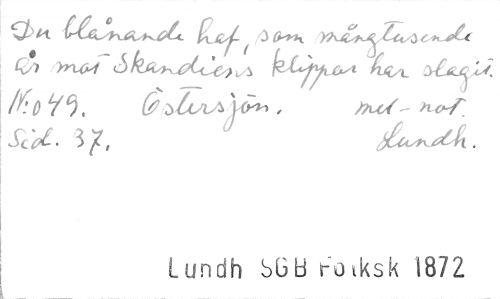 Du blånande haf, som mångtusende
år mot Skandiens klippor har slagit.
N:o 49. Östersjön. mel-not.
Sid. 37. Lundh.
Lundh SGB Folksk 1872